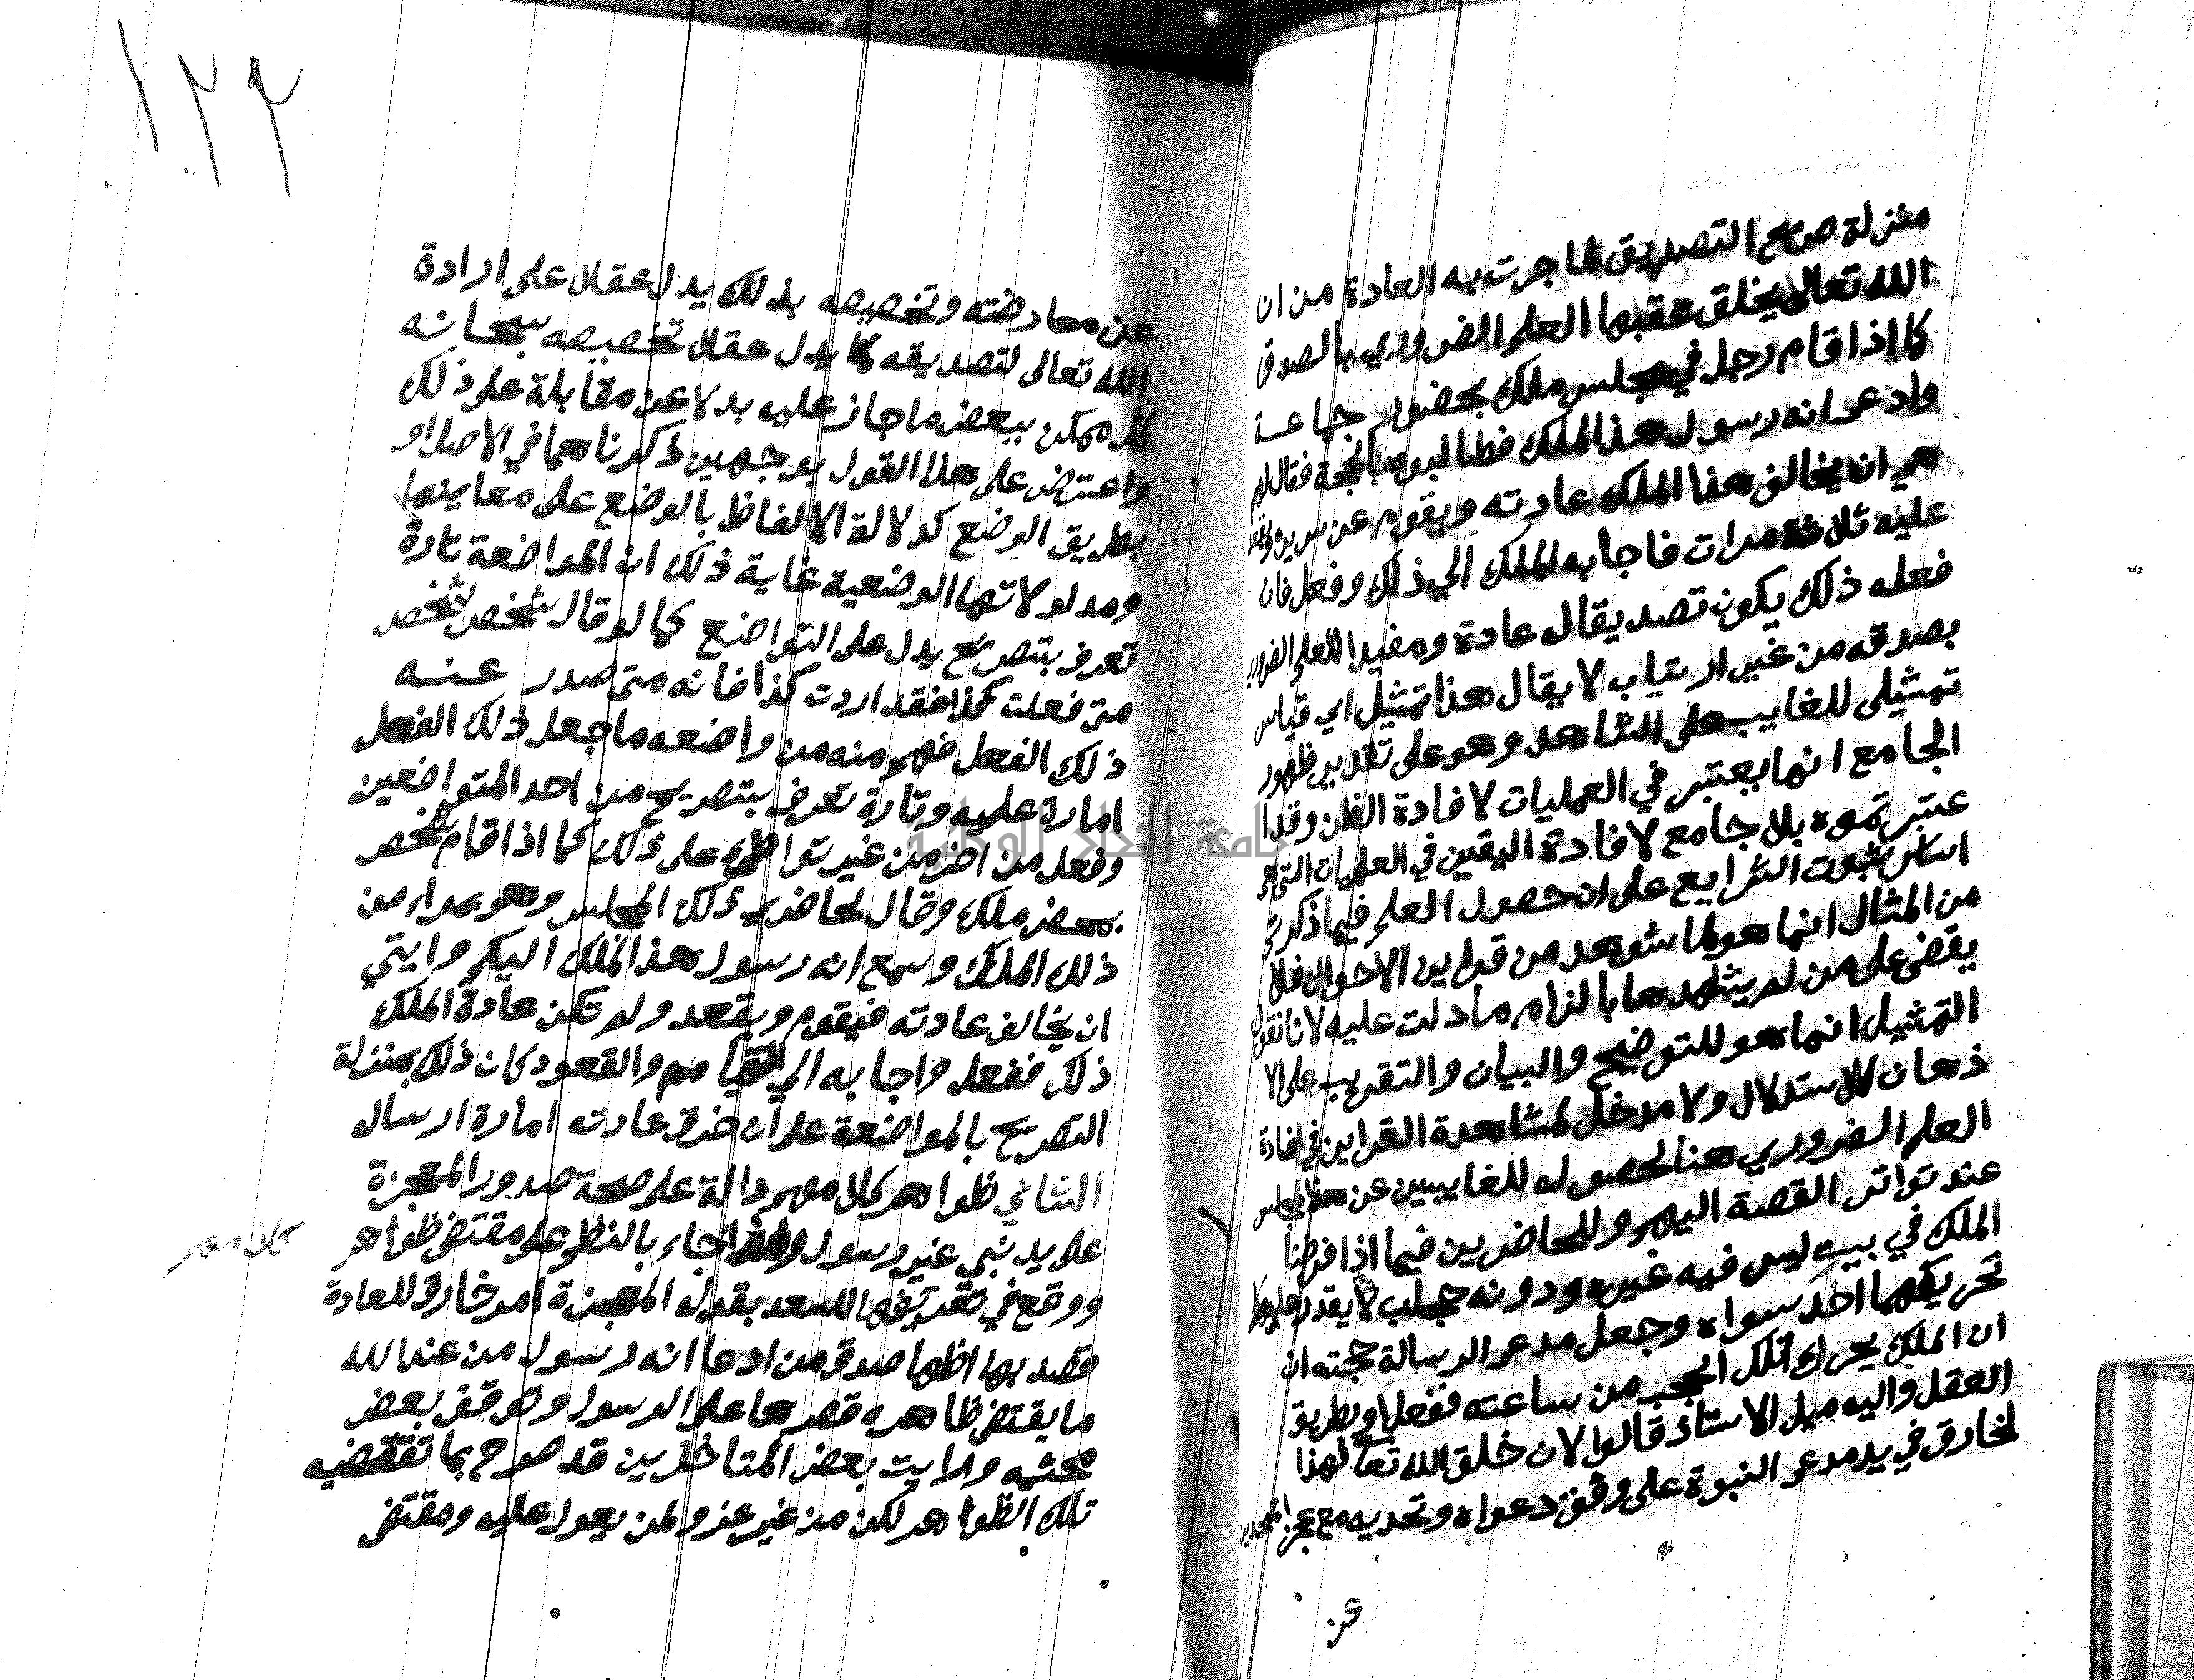 منزلة صريح التصديق لما جرت به العادة من ان
الله تعالى يخلق عقبها العلم الضروري بالصدق
كما اذا قام رجل في مجلس ملك بحضور جماعة
وادعى انه رسول هذا الملك فطالبوه بالحجة فقال لهم
هي ان يخالف هذا الملك عادته ويقوم عن سريره ويقعد
عليه ثلاثة مرات فاجابه الملك الي ذلك وفعل فان
فعله ذلك يكون تصديقا له عادة ومفيدا للعلم الضروري
بصدقه من غير ارتياب لا يقال هذا تمثيل اي قياس
تمثيلى للغايب على الشاهد وهو على تقدير ظهور
الجامع انما يعتبر في العمليات لافادة الظن وقد ا
عتبرتموه بلا جامع لافادة اليقين في العلميات التي هي
اساس ثبوت الشرايع على ان حصول العلم فيما ذكرتم
من المثال انما هو لما شوهد من قراين الاحوال فلا
يقضى على من لم يشاهدها بالزام ما دلت عليه لانا نقول
التمثيل انما هو للتوضيح والبيان والتقريب على الا
ذهان لا الاستدلال ولا مدخل لمشاهدة القراين في افادة
العلم الضروري هنا لحصوله للغايبين عن هذا المجلس
عند تواتر القصة اليهم وللحاضرين فيما اذا فرضنا
الملك في بيت ليس فيه غيره ودونه حجب لا يقدر على
تحريكهما احد سواه وجعل مدعى الرسالة حجته ان
ان الملك يحرك تلك الحجب من ساعته ففعل او بطريق
العقل واليه ميل الاستاذ قالوا لان خلق الله تعالى لهذا
لخارق في يد مدعى النبوة على وفق دعواه وتحديه مع عجز المتحدين
عن
١٢٤
عن معارضته وتخصيصه بذلك يدل عقلا على ارادة
الله تعالى لتصديقه كما يدل عقلا تخصيصه سبحانه
كل ممكن ببعض ما جاز عليه بدلا عن مقابلة على ذلك
واعترض على هذا القول بوجهين ذكرناهما في الاصل او
بطريق الوضع كدلالة الالفاظ بالوضع على معاينها
ومدلولاتها الوضعية غاية ذلك ان المواضعة تارة
تعرف بتصريح يدل على التواضع كما لو قال شخص لشخص
متى فعلت كذا فقد اردت كذا فانه متى صدر عنه
ذلك الفعل فهم منه من واضعه ما جعل ذلك الفعل
امارة عليه وتارة تعرف بتصريح من احد المتواضعين
وفعل من اخر من غير تواطئ على ذلك كما اذا قام شخص
بمحضر ملك وقال لحاضري ذلك المجلس وهو بمراء من
ذلك الملك وسمع انه رسول هذا الملك اليكم وايتي
ان يخالف عادته فيقوم ويقعد ولم تكن عادة الملك
ذلك ففعل واجابه الي القيام والقعود كان ذلك بمنزلة
التصريح بالمواضعة على ان خرق عادته امارة ارساله
الثاني ظواهر كلامهم دالة على صحة صدور المعجزة
على يد نبي غير رسول ولهذا جاء بالنظم على مقتضى ظواهر
كلامهم
ووقع في تعريفها للسعد بقوله المعجزة امر خارق للعادة
قصد بها اظها صدق من ادعا انه رسول من عند الله
ما يقتضى ظاهره قصرها على الرسول وتوقف بعض
محشيه ورايت بعض المتاخرين قد صرح بما تقتضيه
تلك الظواهر لكن من غير عزو لمن يعول عليه ومقتضى